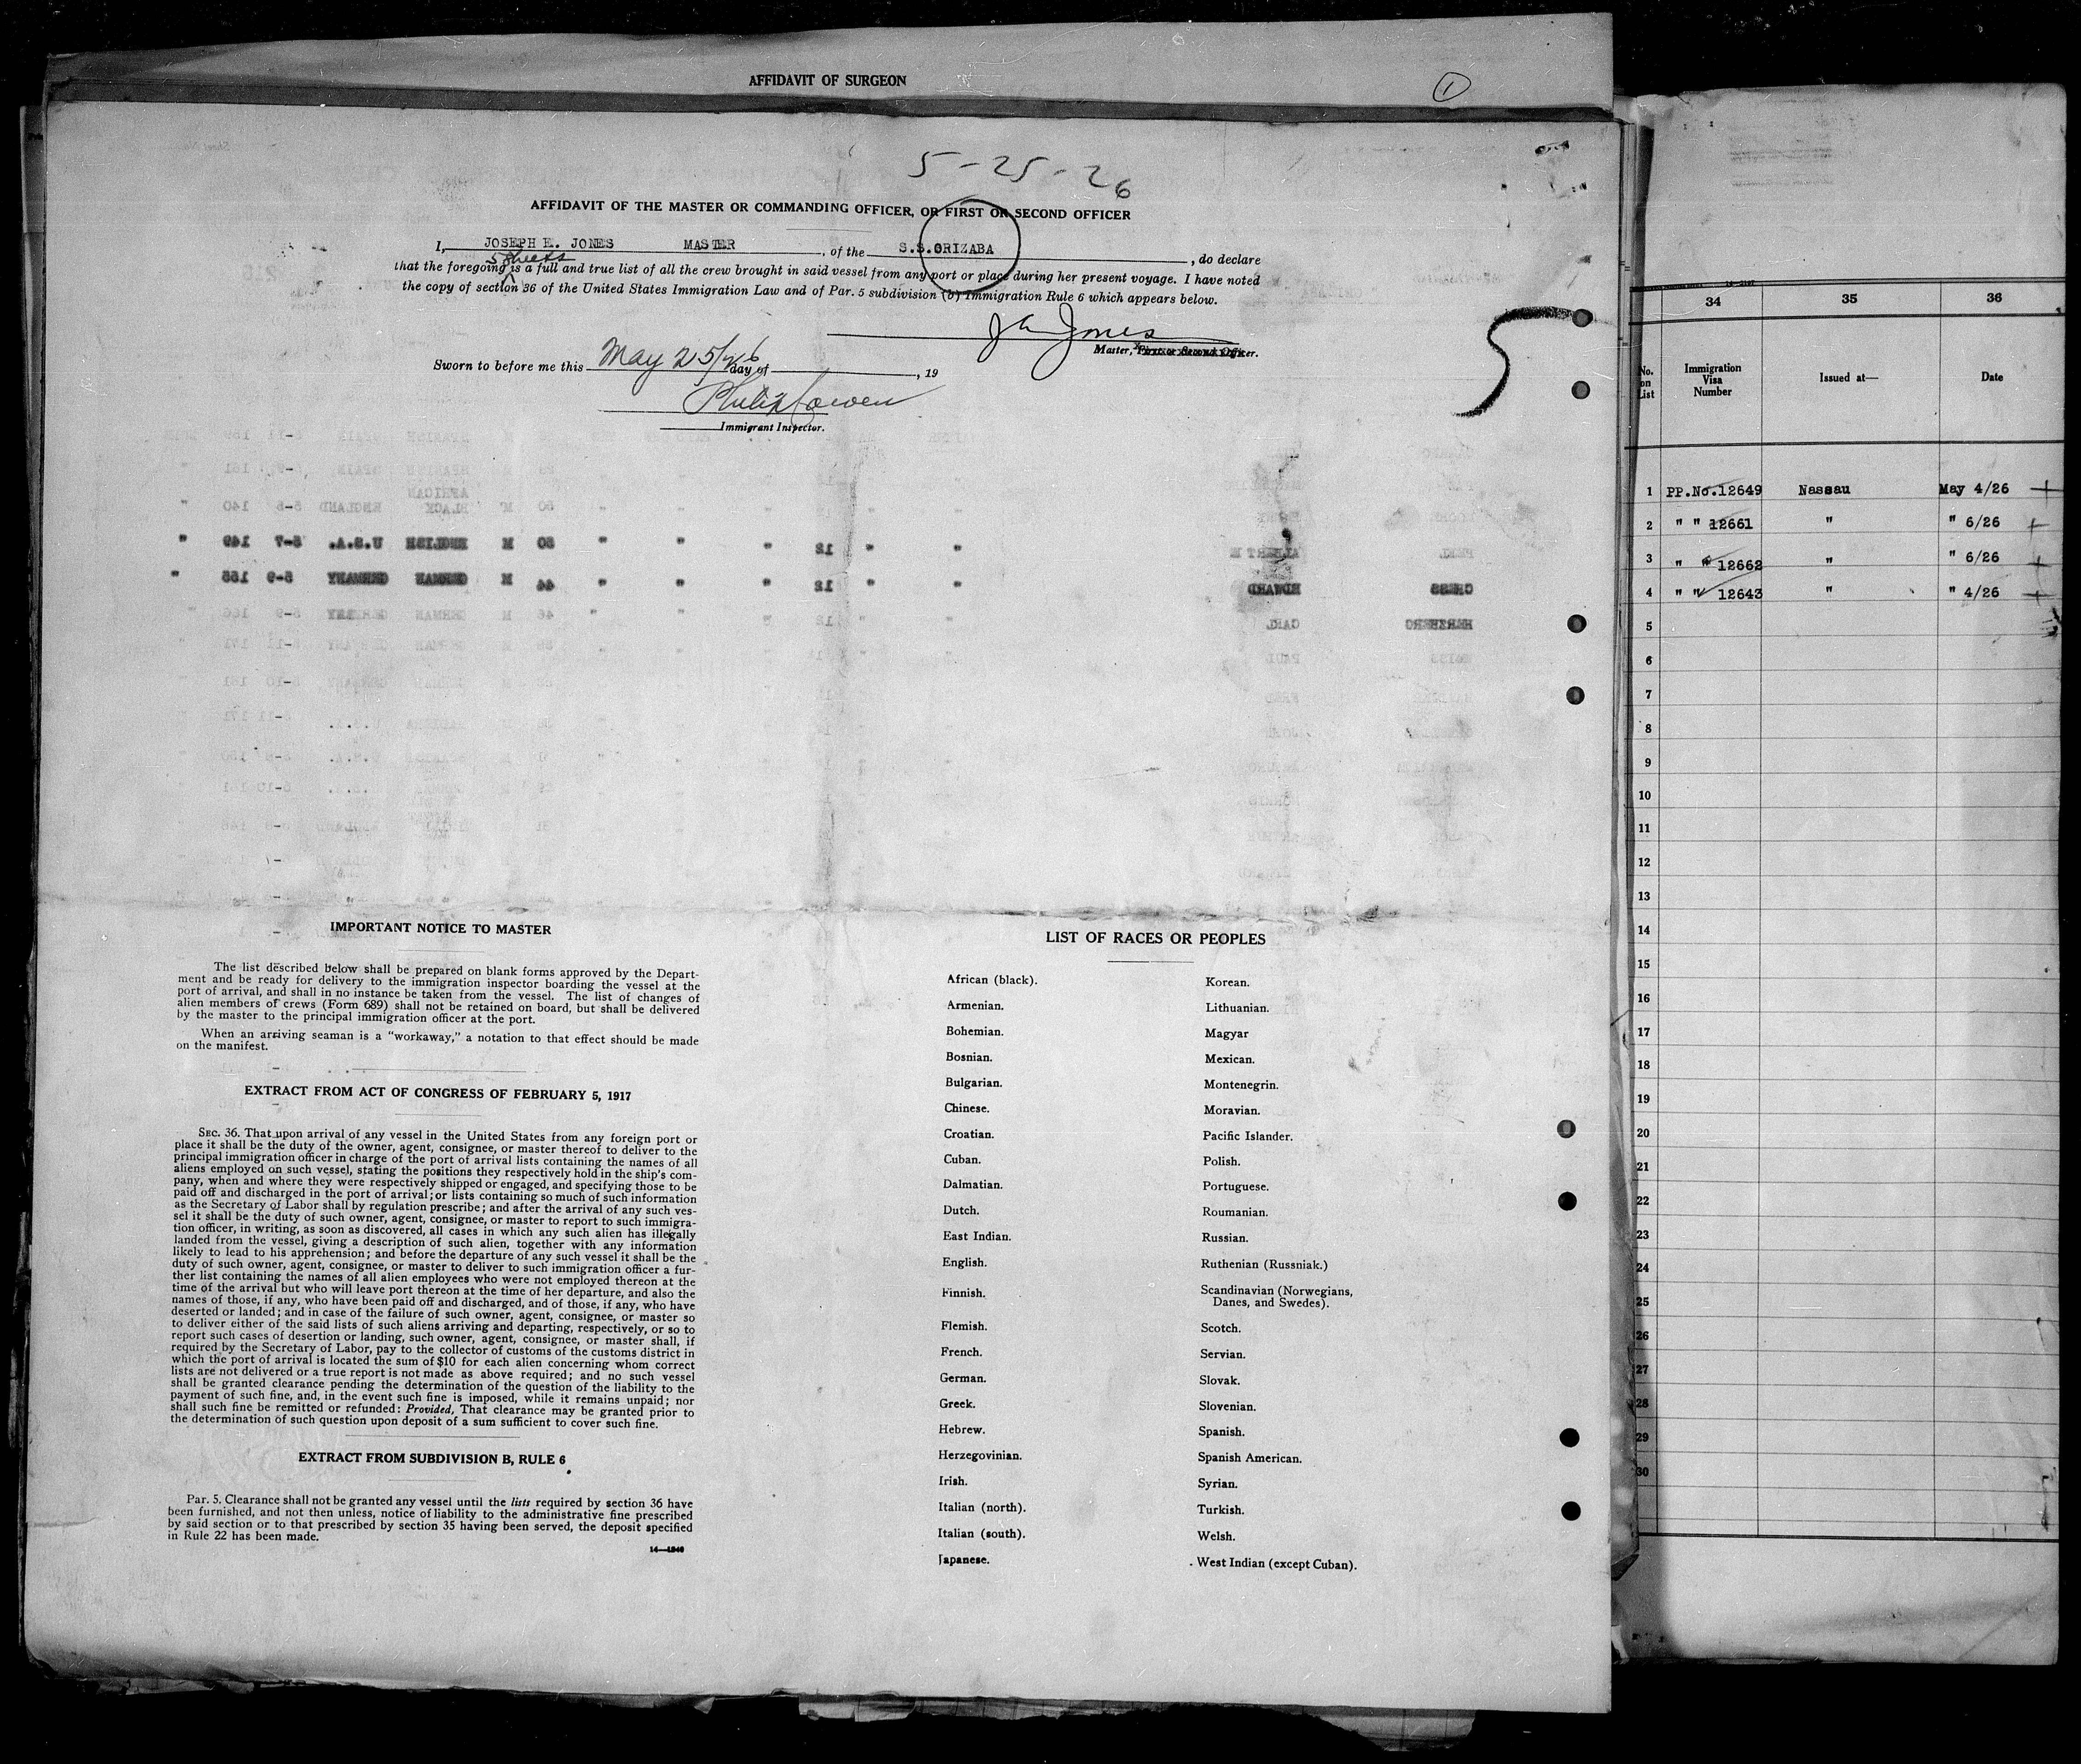 AFFIDAVIT OF SURGEON
1
5-25-26
AFFIDAVIT OF THE MASTER OR COMMANDING OFFICER, OR FIRST OR SECOND OFFICER
I, JOSEPH E. JONES MASTER, of the S.S.ORIZABA, do declare
5 sheets
that the foregoing is a full and true list of all the crew brought in said vessel from any port or place during her present voyage. I have noted
the copy of section 36 of the United States Immigration Law and of Par. 5 subdivision (b) Immigration Rule 6 which appears below.
J E Jones
5
Master, First or Second Officer.
Sworn to before me this May 25/26 day of , 19
Immigrant Inspector.
IMPORTANT NOTICE TO MASTER
The list described below shall be prepared on blank forms approved by the Depart-
ment and be ready for delivery to the immigration inspector boarding the vessel at the
port of arrival, and shall in no instance be taken from the vessel. The list of changes of
alien members of crews (Form 689) shall not be retained on board, but shall be delivered
by the master to the principal immigration officer at the port.
When an arriving seaman is a "workaway," a notation to that effect should be made
on the manifest.
EXTRACT FROM ACT OF CONGRESS OF FEBRUARY 5, 1917
SEC. 36. That upon arrival of any vessel in the United States from any foreign port or
place it shall be the duty of the owner, agent, consignee, or master thereof to deliver to the
principal immigration officer in charge of the port of arrival lists containing the names of all
aliens employed on such vessel, stating the positions they respectively hold in the ship's com-
pany, when and where they were respectively shipped or engaged, and specifying those to be
paid off and discharged in the port of arrival; or lists containing so much of such information
as the Secretary of Labor shall by regulation prescribe; and after the arrival of any such ves-
sel it shall be the duty of such owner, agent, consignee, or master to report to such immigra-
tion officer, in writing, as soon as discovered, all cases in which any such alien has illegally
landed from the vessel, giving a description of such alien, together with any information
likely to lead to his apprehension; and before the departure of any such vessel it shall be the
duty of such owner, agent, consignee, or master to deliver to such immigration officer a fur-
ther list containing the names of all alien employees who were not employed thereon at the
time of the arrival but who will leave port thereon at the time of her departure, and also the
names of those, if any, who have been paid off and discharged, and of those, if any, who have
deserted or landed; and in case of the failure of such owner, agent, consignee, or master so
to deliver either of the said lists of such aliens arriving and departing, respectively, or so to
report such cases of desertion or landing, such owner, agent, consignee, or master shall, if
required by the Secretary of Labor, pay to the collector of customs of the customs district in
which the port of arrival is located the sum of $10 for each alien concerning whom correct
lists are not delivered or a true report is not made as above required; and no such vessel
shall be granted clearance pending the determination of the question of the liability to the
payment of such fine, and, in the event such fine is imposed, while it remains unpaid; nor
shall such fine be remitted or refunded: Provided, That clearance may be granted prior to
the determination of such question upon deposit of a sum sufficient to cover such fine.
EXTRACT FROM SUBDIVISION B, RULE 6
Par. 5. Clearance shall not be granted any vessel until the lists required by section 36 have
been furnished, and not then unless, notice of liability to the administrative fine prescribed
by said section or to that prescribed by section 35 having been served, the deposit specified
in Rule 22 has been made.
LIST OF RACES OR PEOPLES
African (black).
Armenian.
Bohemian.
Bosnian.
Bulgarian.
Chinese.
Croatian.
Cuban.
Dalmatian.
Dutch.
East Indian.
English.
Finnish.
Flemish.
French.
German.
Greek.
Hebrew.
Herzegovinian.
Irish.
Italian (north).
Italian (south).
Japanese.
Korean.
Lithuanian.
Magyar
Mexican.
Montenegrin.
Moravian.
Pacific Islander.
Polish.
Portuguese.
Roumanian.
Russian.
Ruthenian (Russniak.)
Scandinavian (Norwegians,
Danes, and Swedes).
Scotch.
Servian.
Slovak.
Slovenian.
Spanish.
Spanish American.
Syrian.
Turkish.
Welsh.
West Indian (except Cuban).
34 35 36
No. on List
Immigration Visa Number
Issued at—
Date
1 PP.No.12649 Nassau May 4/26
2 " " 12661 " " 6/26
3 " " 12662 " " 6/26
4 " " 12643 " " 4/26
5
6
7
8
9
10
11
12
13
14
15
16
17
18
19
20
21
22
23
24
25
26
27
28
29
30